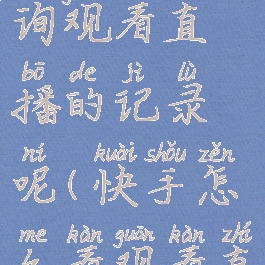 询观看直
bō de jì lù
播的记录
ní kuài shǒu zěn
呢(快手怎
me kàn guān kàn zhí
么看观看直